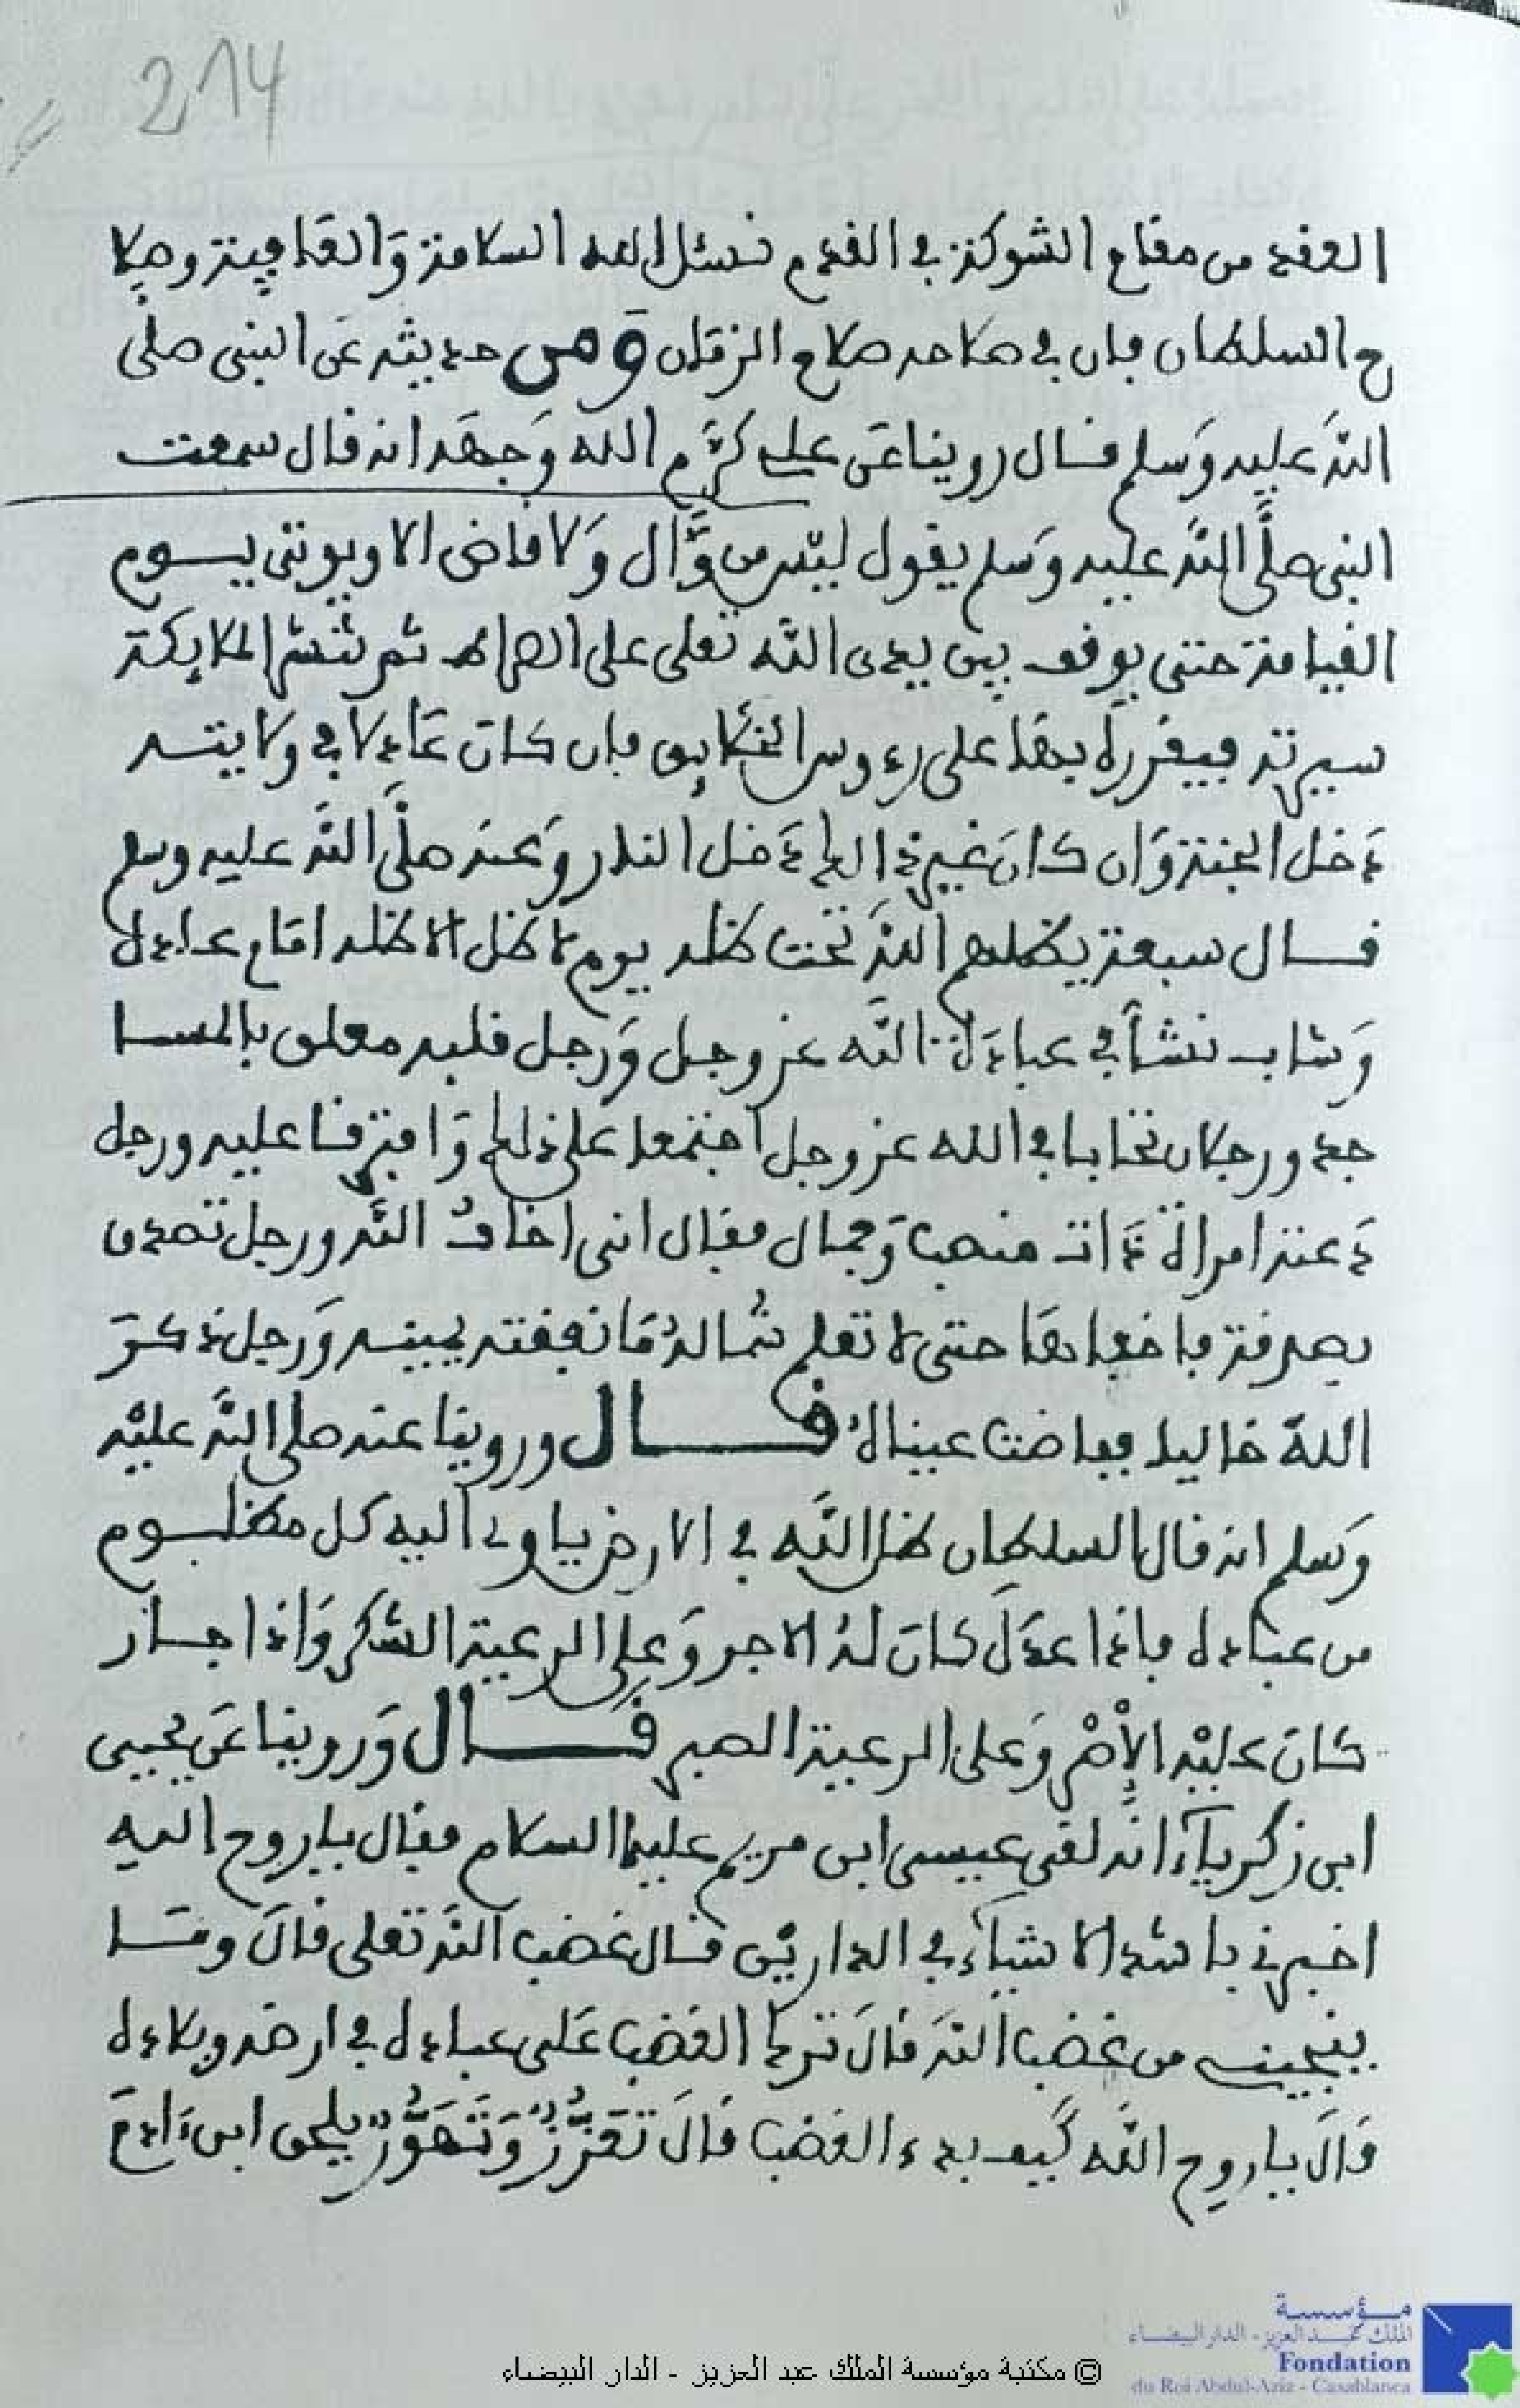 214
الوفد من مقام الشوكة في القدم نسئل الله السلامة والعافية وصلا
ح السلطان فان في صلاحه صلاح الزمان ومن حديثه عن النبي صلى
الله عليه وسلم قال روينا عن علي كرم الله وجهه انه قال سمعت
النبي صلى الله عليه وسلم يقول ليس من وال ولا قاضى الا ويوتى يوم
القيامة حتى يوقف بين يدى الله تعلى على الصراط ثم تنشر الملايكة
سيرته فيقرءها على رءوس الخلايق فان كان عادلا في ولايته
دخل الجنة وان كان غير ذالك دخل النار وعنه صلى الله عليه وسلم
قال سبعة يظلهم الله تحت ظله يوم لا ظل الا ظله امام عادل
وشاب نشأ في عبادة الله عز وجل ورجل قلبه معلق بالمسا
جد ورجلان تحابا في الله عز وجل اجتمعا على ذلك وافترقا عليه ورجل
دعته امراة ذات منصب وجمال فقال اني اخاف الله ورجل تصدى
بصدقة فاخفاها حتى لا تعلم شماله ما نفقته يمينه ورجل ذكر
الله خاليا ففاضت عيناه قال وروينا عنه صلى الله عليه
وسلم انه قال السلطان ظل الله في الارض ياوى اليه كل مظلوم
من عباده فاذا عدل كان له الاجر وعلى الرعية الشكر واذا جار
كان عليه الإصر وعلى الرعية الصبر قال وروينا عن يحيى
ابن زكرياء انه لقى عيسى ابن مريم عليهما السلام فقال ياروح اليه
اخبرني باشد الاشياء في الدارين قال غضب الله تعلى قال وما
ينجيني من غضب الله قال ترك الغضب على عباده في ارضه وبلاده
قال ياروح الله كيف بدء الغضب قال تعزز وتهور يلحق ابن ءادم
© مكتبة مؤسسة الملك عبد العزيز - الدار البيضاء
مؤسسة
الملك عبد العزيز - الدار البيضاء
Fondation
du Roi Abdul-Aziz - Casablanca